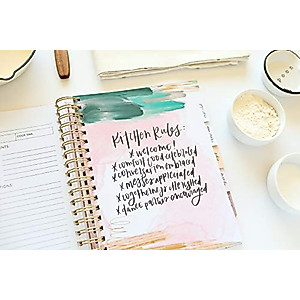 Kitchen Rules:
x welcome!
x comfort food celebrated
x conversation embraced
x messes appreciated
x togetherness relished
x dance parties encouraged